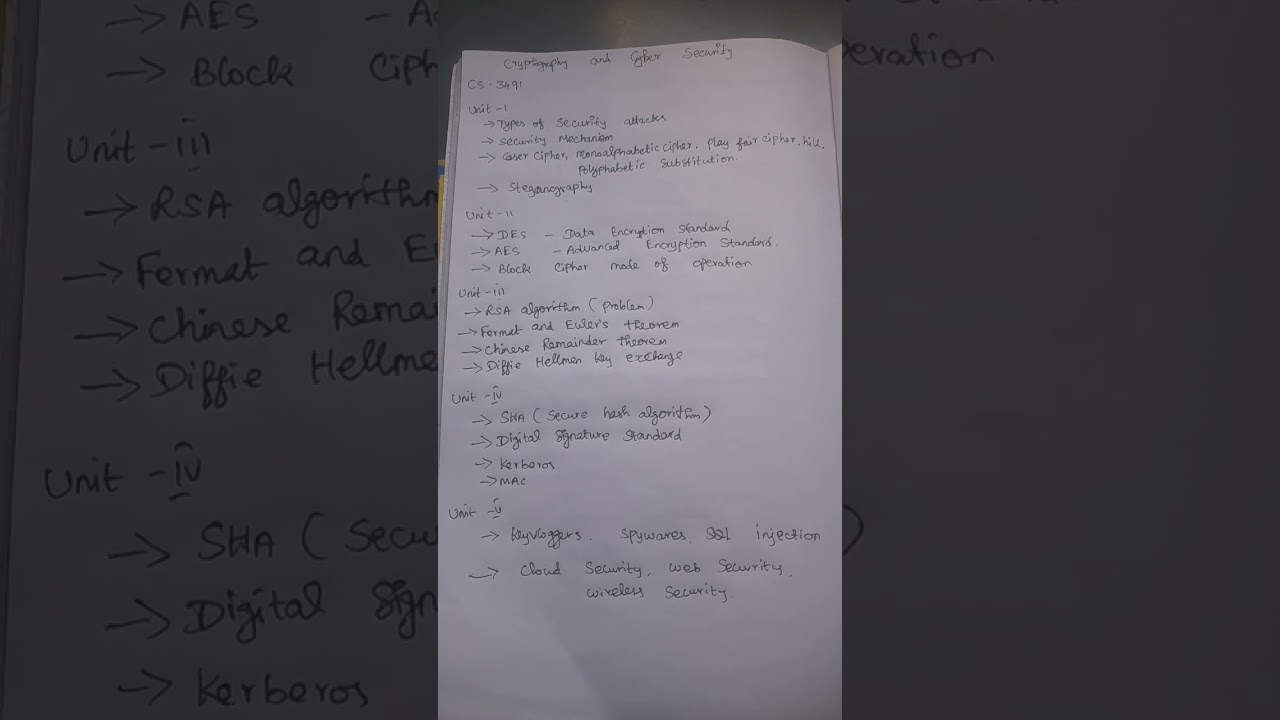 Cryptography and Cyber Security
CS-3491
Unit-I
→ Types of Security attacks
→ Security Mechanism
→ Caser Cipher, monoalphabetic cipher, Play fair cipher, hill,
Polyphabetic Substitution.
→ Steganography
Unit-II
→ DES - Data Encryption Standard
→ AES - Advanced Encryption Standard.
→ Block Cipher mode of operation
Unit-III
→ RSA algorithm (Problem)
→ Fermat and Euler's theorem
→ Chinese Remainder theorem
→ Diffie Hellmen key exchange
Unit-IV
→ SHA (Secure hash algorithm)
→ Digital Signature Standard
→ Kerberos
→ MAC
Unit-V
→ Keyvloggers, Spywares, SQL injection
→ Cloud Security, Web Security,
Wireless Security.